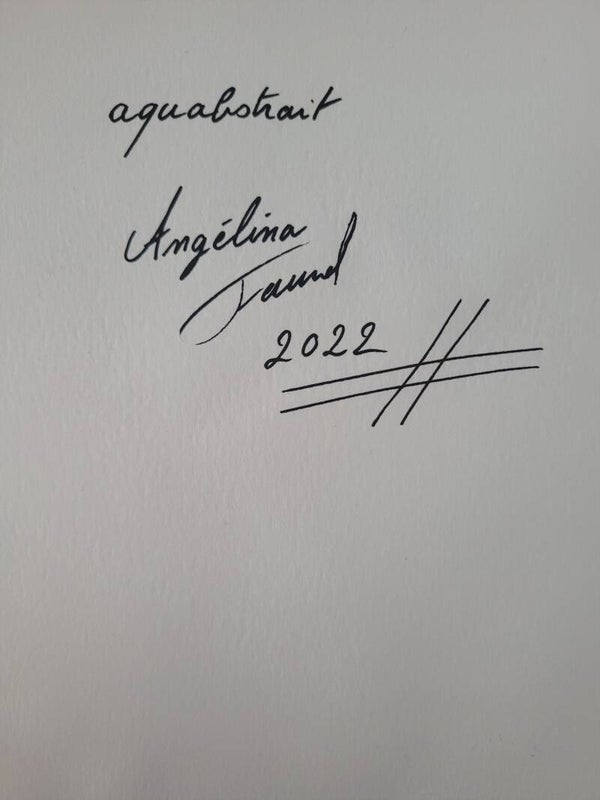 aquabstrait
Angélina
2022